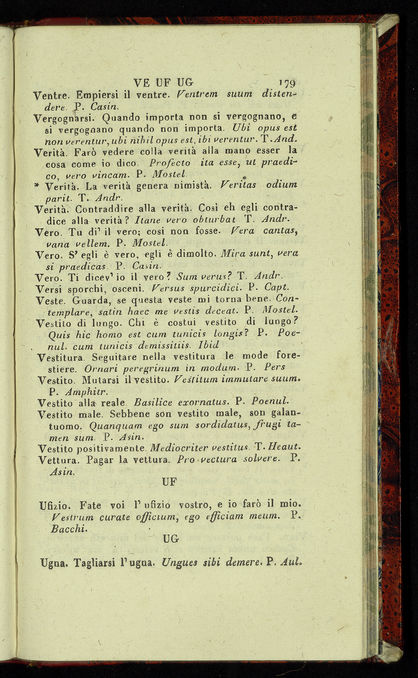 VE UF UG 179
Ventre. Empiersi il ventre. Ventrem suum disten-
dere. P. Casin.
Vergognarsi. Quando importa non si vergognano, e
si vergognano quando non importa. Ubi opus est
non verentur, ubi nihil opus est, ibi verentur. T. And.
Verità. Farò vedere colla verità alla mano esser la
cosa come io dico. Profecto ita esse, ut praedi-
co, vero vincam. P. Mostel.
* Verità. La verità genera nimistà. Veritas odium
parit. T. Andr.
Verità. Contraddire alla verità. Così eh egli contra-
dice alla verità? Itane vero obturbat T. Andr.
Vero. Tu di' il vero; così non fosse. Vera cantas,
vana vellem. P. Mostel.
Vero. S' egli è vero, egli è dimolto. Mira sunt, vera
si praedicas. P. Casin.
Vero. Ti dicev' io il vero? Sum verus? T. Andr.
Versi sporchi, osceni. Versus spurcidici. P. Capt.
Veste. Guarda, se questa veste mi torna bene. Con-
templare, satin haec me vestis deceat. P. Mostel.
Vestito di lungo. Chi è costui vestito di lungo?
Quis hic homo est cum tunicis longis? P. Poe-
nul. cum tunicis demissitiis. Ibid
Vestitura. Seguitare nella vestitura le mode fore-
stiere. Ornari peregrinum in modum. P. Pers
Vestito. Mutarsi il vestito. Vestitum immutare suum.
P. Amphitr.
Vestito alla reale. Basilice exornatus. P. Poenul.
Vestito male. Sebbene son vestito male, son galan-
tuomo. Quanquam ego sum sordidatus, frugi ta-
men sum. P. Asin.
Vestito positivamente. Mediocriter vestitus. T. Heaut.
Vettura. Pagar la vettura. Pro vectura solvere. P.
Asin.
UF
Ufizio. Fate voi l' ufizio vostro, e io farò il mio.
Vestrum curate officium, ego efficiam meum. P.
Bacchi.
UG
Ugna. Tagliarsi l' ugna. Ungues sibi demere. P. Aul.